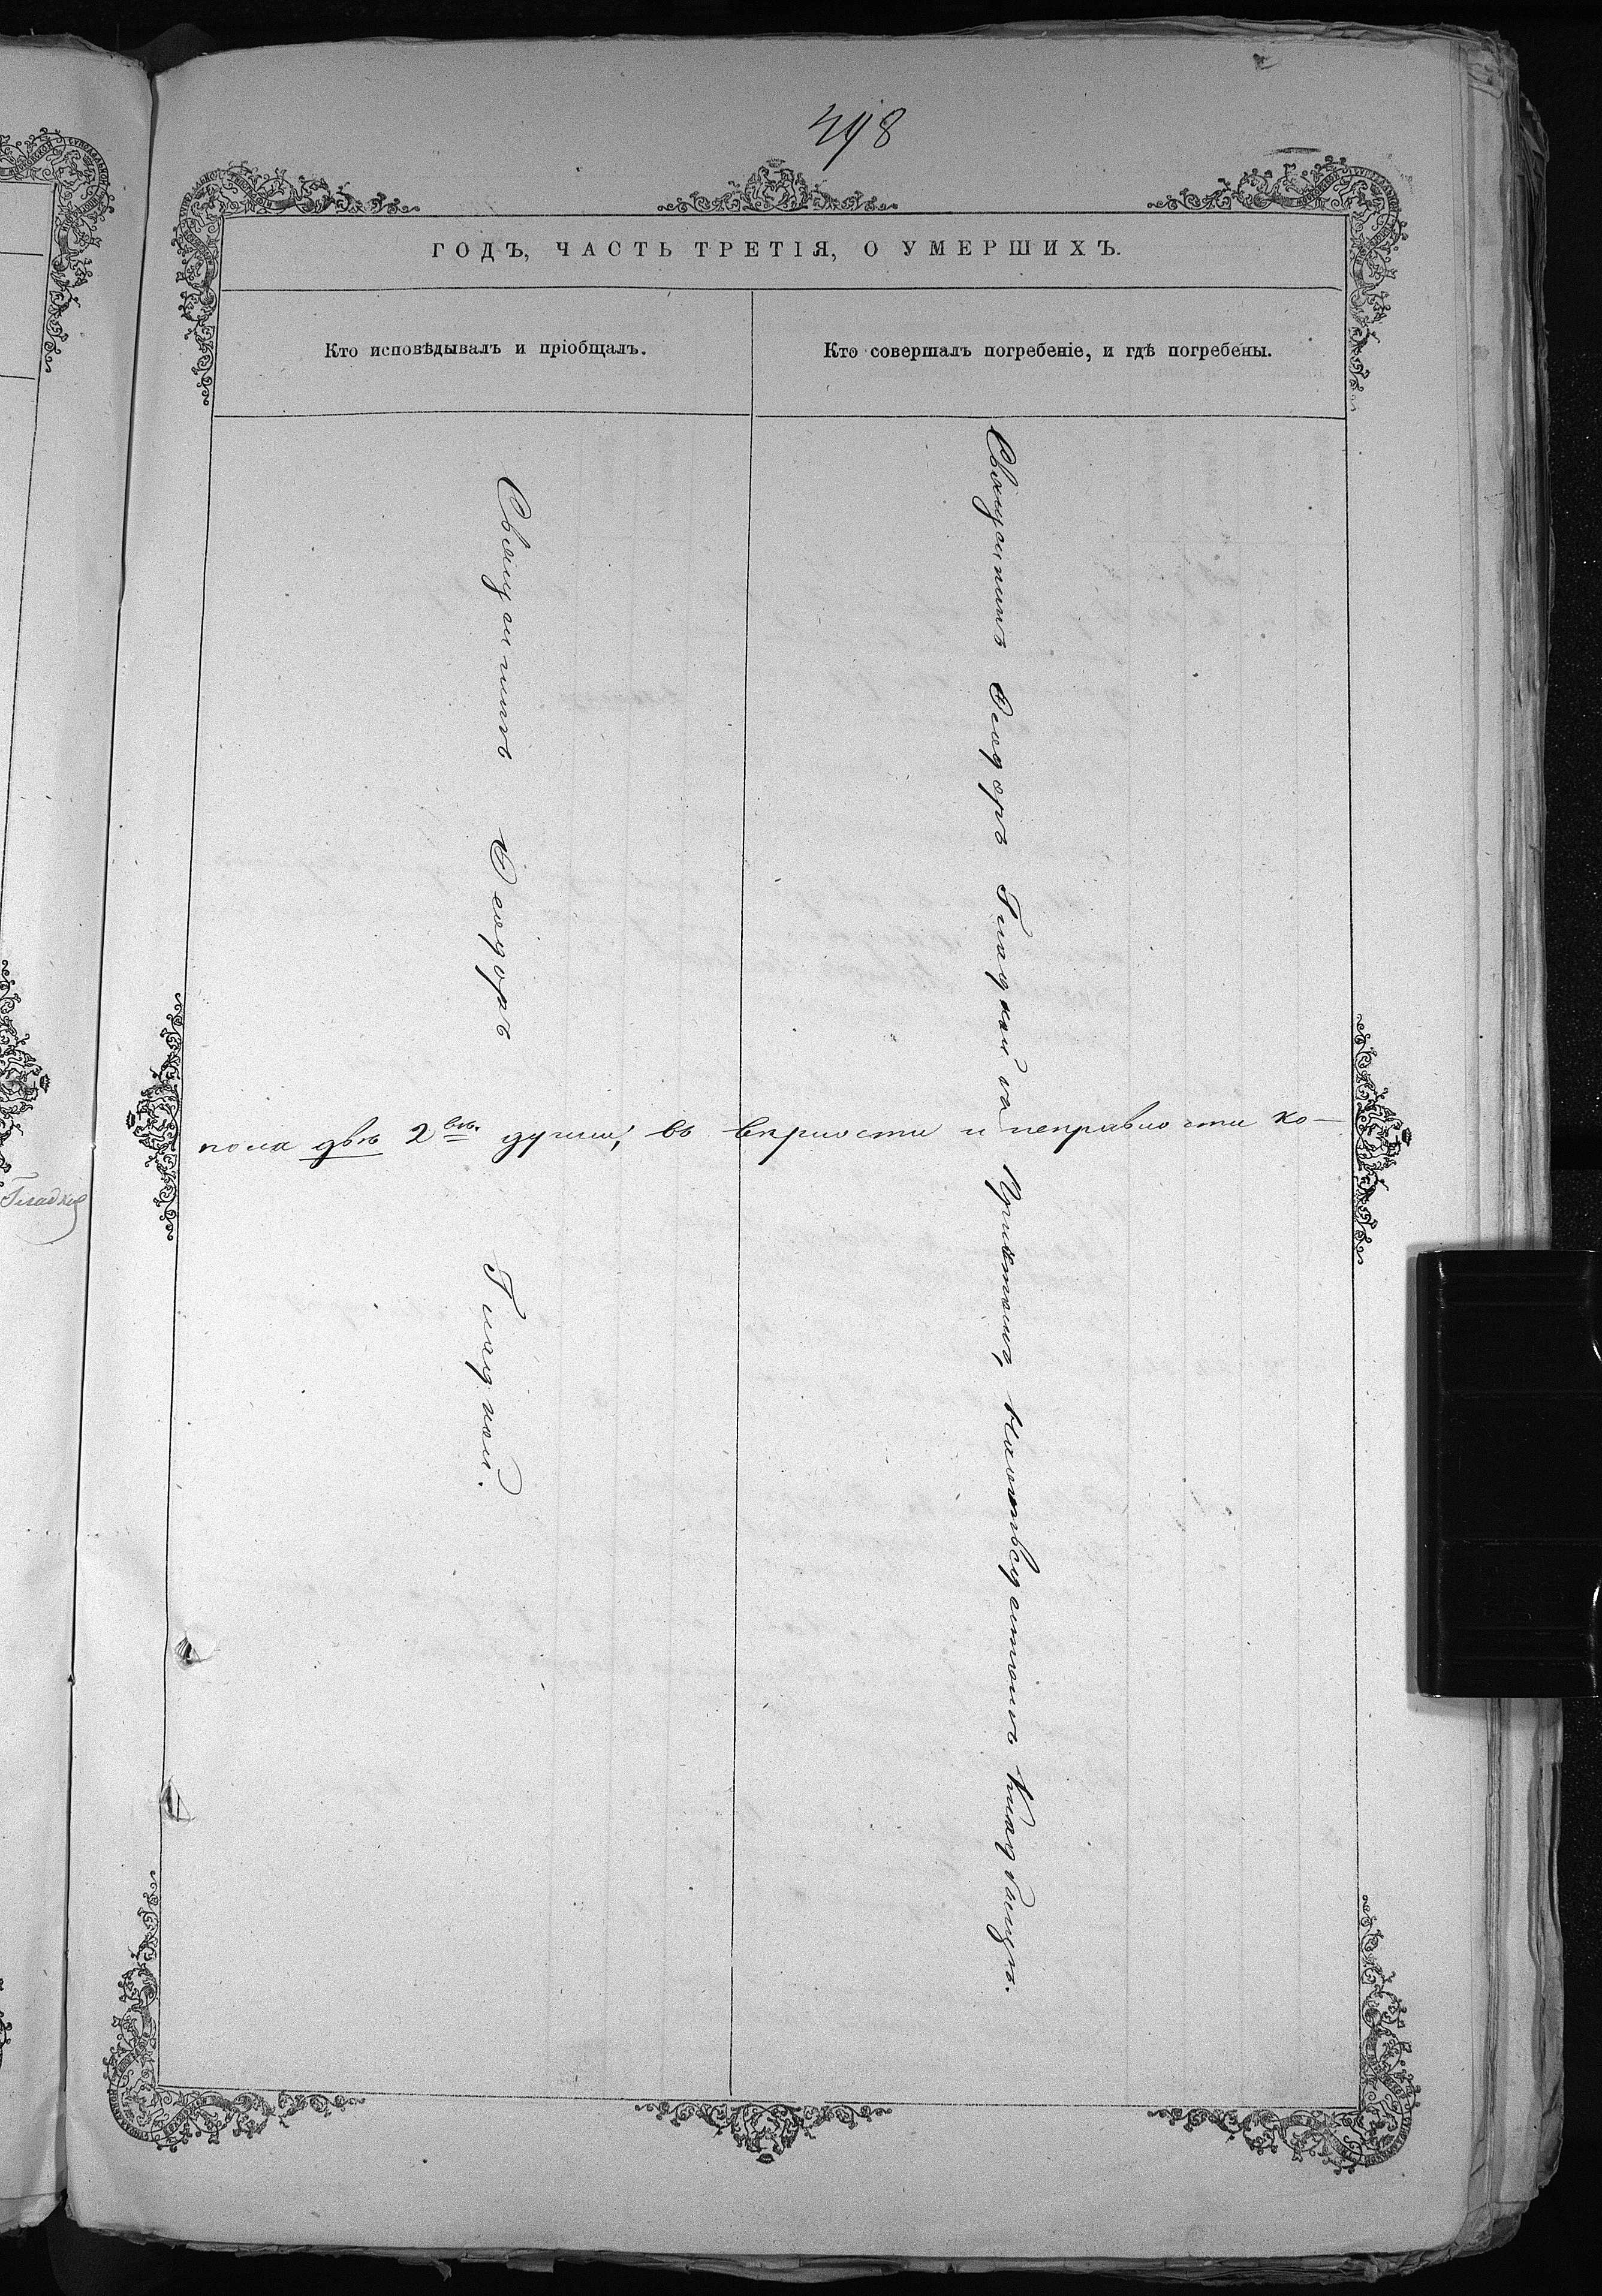 498
ГОДЪ, ЧАСТЬ ТРЕТІЯ, О УМЕРШИХЪ.
Кто исповѣдывалъ и пріобщалъ.
Кто совершалъ погребеніе, и гдѣ погребены.
Священникъ Ѳеодоръ Гладкой.
Священникъ Ѳеодоръ Гладкой съ Причтомъ, на кладбищѣ.
пола двѣ 2 души, въ вѣрности и неправности ко-
Гладкой